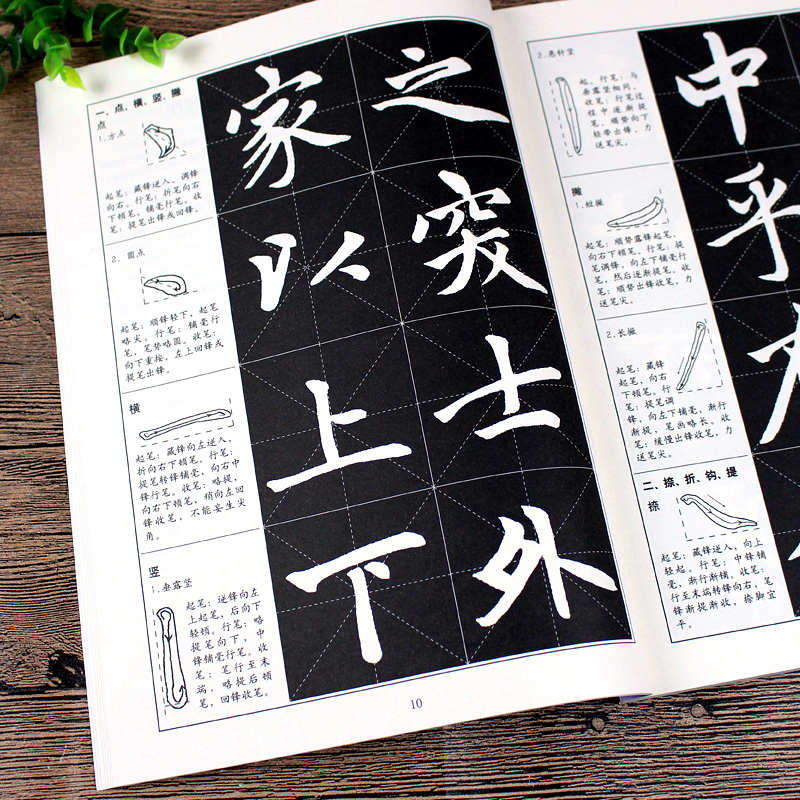 一、点、横、竖、撇
点
1.方点
起笔：藏锋逆入，调锋
向右。行笔：折笔向右
下顿笔，铺毫行笔。收
笔：提笔出锋或回锋。
2.圆点
起笔：顺锋轻下，起笔
略尖。行笔：铺毫行
笔，笔势略圆。收笔：
向下重按，左上回锋或
提笔出锋。
横
起笔：藏锋向左逆入，
折向右下顿笔。行笔：
提笔转锋铺毫，向右中
锋行笔。收笔：略提，
向右下顿笔，稍向左回
锋收笔，不能妄生尖
角。
竖
1.垂露竖
起笔：逆锋向左
上起笔，后向下
轻顿。行笔：略
提笔向下，中
锋铺毫行笔。收
笔：笔行至末
端，略提后顿
笔，回锋收笔。
家 之
以 突
上 士
下 外
10
2.悬针竖
起、行笔：与
垂露竖相同。
收笔：行笔过
程中逐渐提
笔，顺势向下
轻带出锋，力
送笔尖。
撇
1.短撇
起笔：顺势露锋起笔，
向右下顿笔。行笔：提
笔调锋，向左下铺毫行
笔，然后逐渐提笔。收
笔：顺势出锋收笔，力
送笔尖。
2.长撇
起笔：藏锋
起笔，向右
下顿笔。行
笔：提笔调
锋，向左下铺毫，渐行
渐提，笔画略长。收
笔：缓慢出锋收笔，力
送笔尖。
二、捺、折、钩、提
捺
起笔：藏锋逆入，向上
轻起。行笔：中锋铺
毫，渐行渐铺。收笔：
行至末端转向右，笔
锋渐提渐收，捺脚宜
平。
中
乎